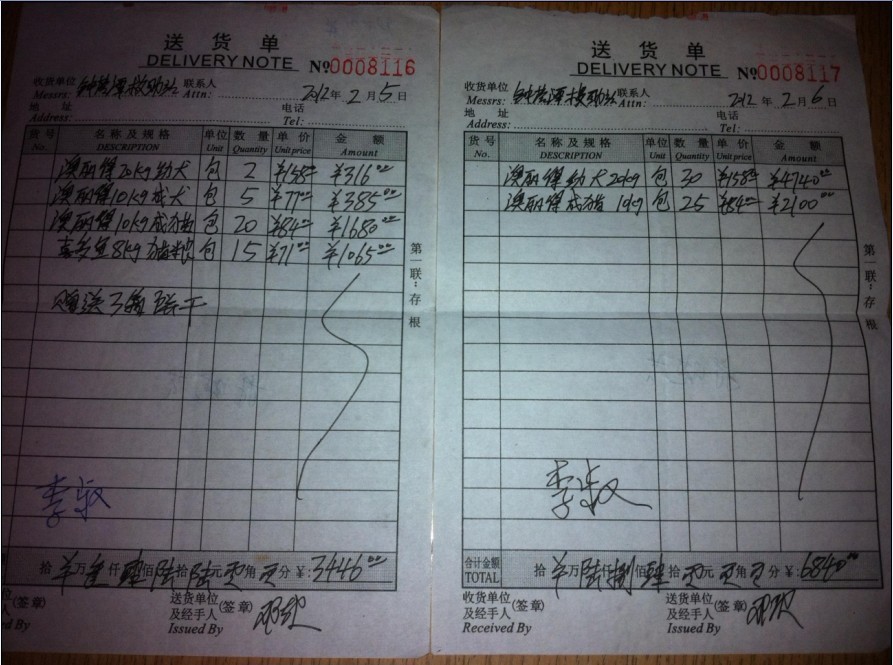 送货单
DELIVERY NOTE
№0008116
收货单位 联系人
Messrs: Attn: 2012年2月5日
地址 电话
Address: Tel:
货号 名称及规格 单位 数量 单价 金额
No. DESCRIPTION Unit Quantity Unit price Amount
澳丽得20kg幼犬 包 2 ¥158 ¥316.00
澳丽得10kg成犬 包 5 ¥77.00 ¥385.00
澳丽得10kg成猫 包 20 ¥84.00 ¥1680.00
喜多鱼8kg猫粮 包 15 ¥71.00 ¥1065.00
第一联：存根
拾 万 仟 佰 陆拾陆元 角 分 ¥: 3446.00
(签章) 送货单位
及经手人 (签章)
Issued By
送货单
DELIVERY NOTE
№0008117
收货单位 联系人
Messrs: Attn: 2012年2月6日
地址 电话
Address: Tel:
货号 名称及规格 单位 数量 单价 金额
No. DESCRIPTION Unit Quantity Unit price Amount
澳丽得幼犬20kg 包 30 ¥158 ¥4740.00
澳丽得成猫10kg 包 25 ¥84.00 ¥2100.00
第一联：存根
合计金额
TOTAL 拾 万陆仟捌佰肆拾 元 角 分 ¥: 6840.00
收货单位 送货单位
及经手人 (签章) 及经手人 (签章)
Received By Issued By